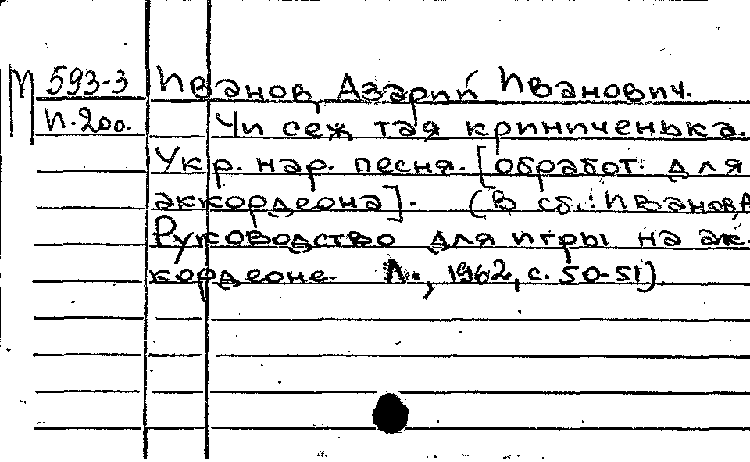 М 593-3 Иванов, Азарий Иванович.
И-200. Чи сеж тая криниченька.
Укр. нар. песня. [обработ. для
аккордеона]. (В сб.: Иванов, А
Руководство для игры на ак-
кордеоне. Л., 1962, с. 50-51).